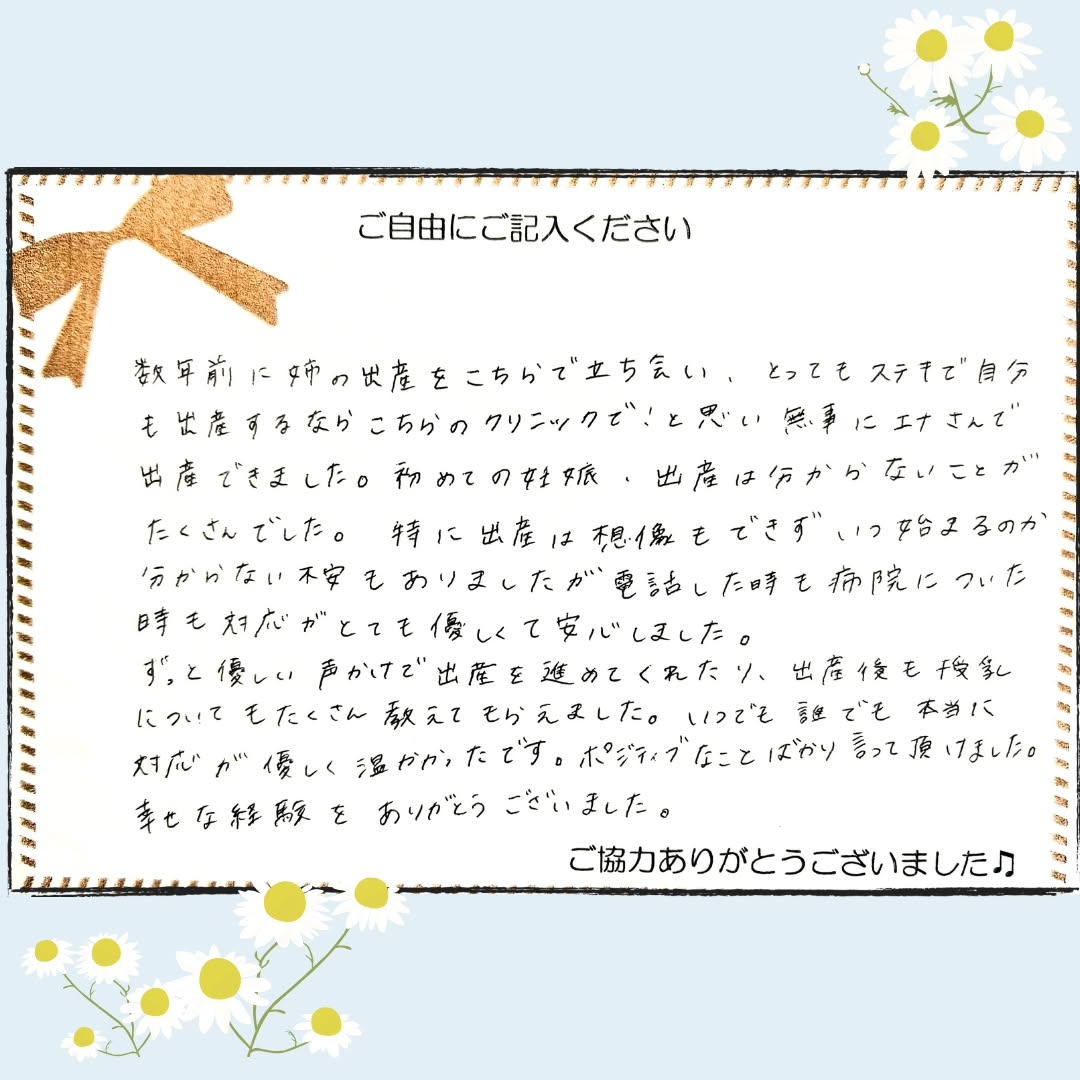 ご自由にご記入ください
数年前に姉の出産をこちらで立ち会い、とってもステキで自分
も出産するならこちらのクリニックで!と思い無事にエナさんで
出産できました。初めての妊娠、出産は分からないことが
たくさんでした。特に出産は想像もできずいつ始まるのか
分からない不安もありましたが電話した時も病院についた
時も対応がとても優しくて安心しました。
ずっと優しい声かけで出産を進めてくれたり、出産後も授乳
についてもたくさん教えてもらえました。いつでも誰でも本当に
対応が優しく温かかったです。ポジティブなことばかり言って頂けました。
幸せな経験をありがとうございました。
ご協力ありがとうございました♫